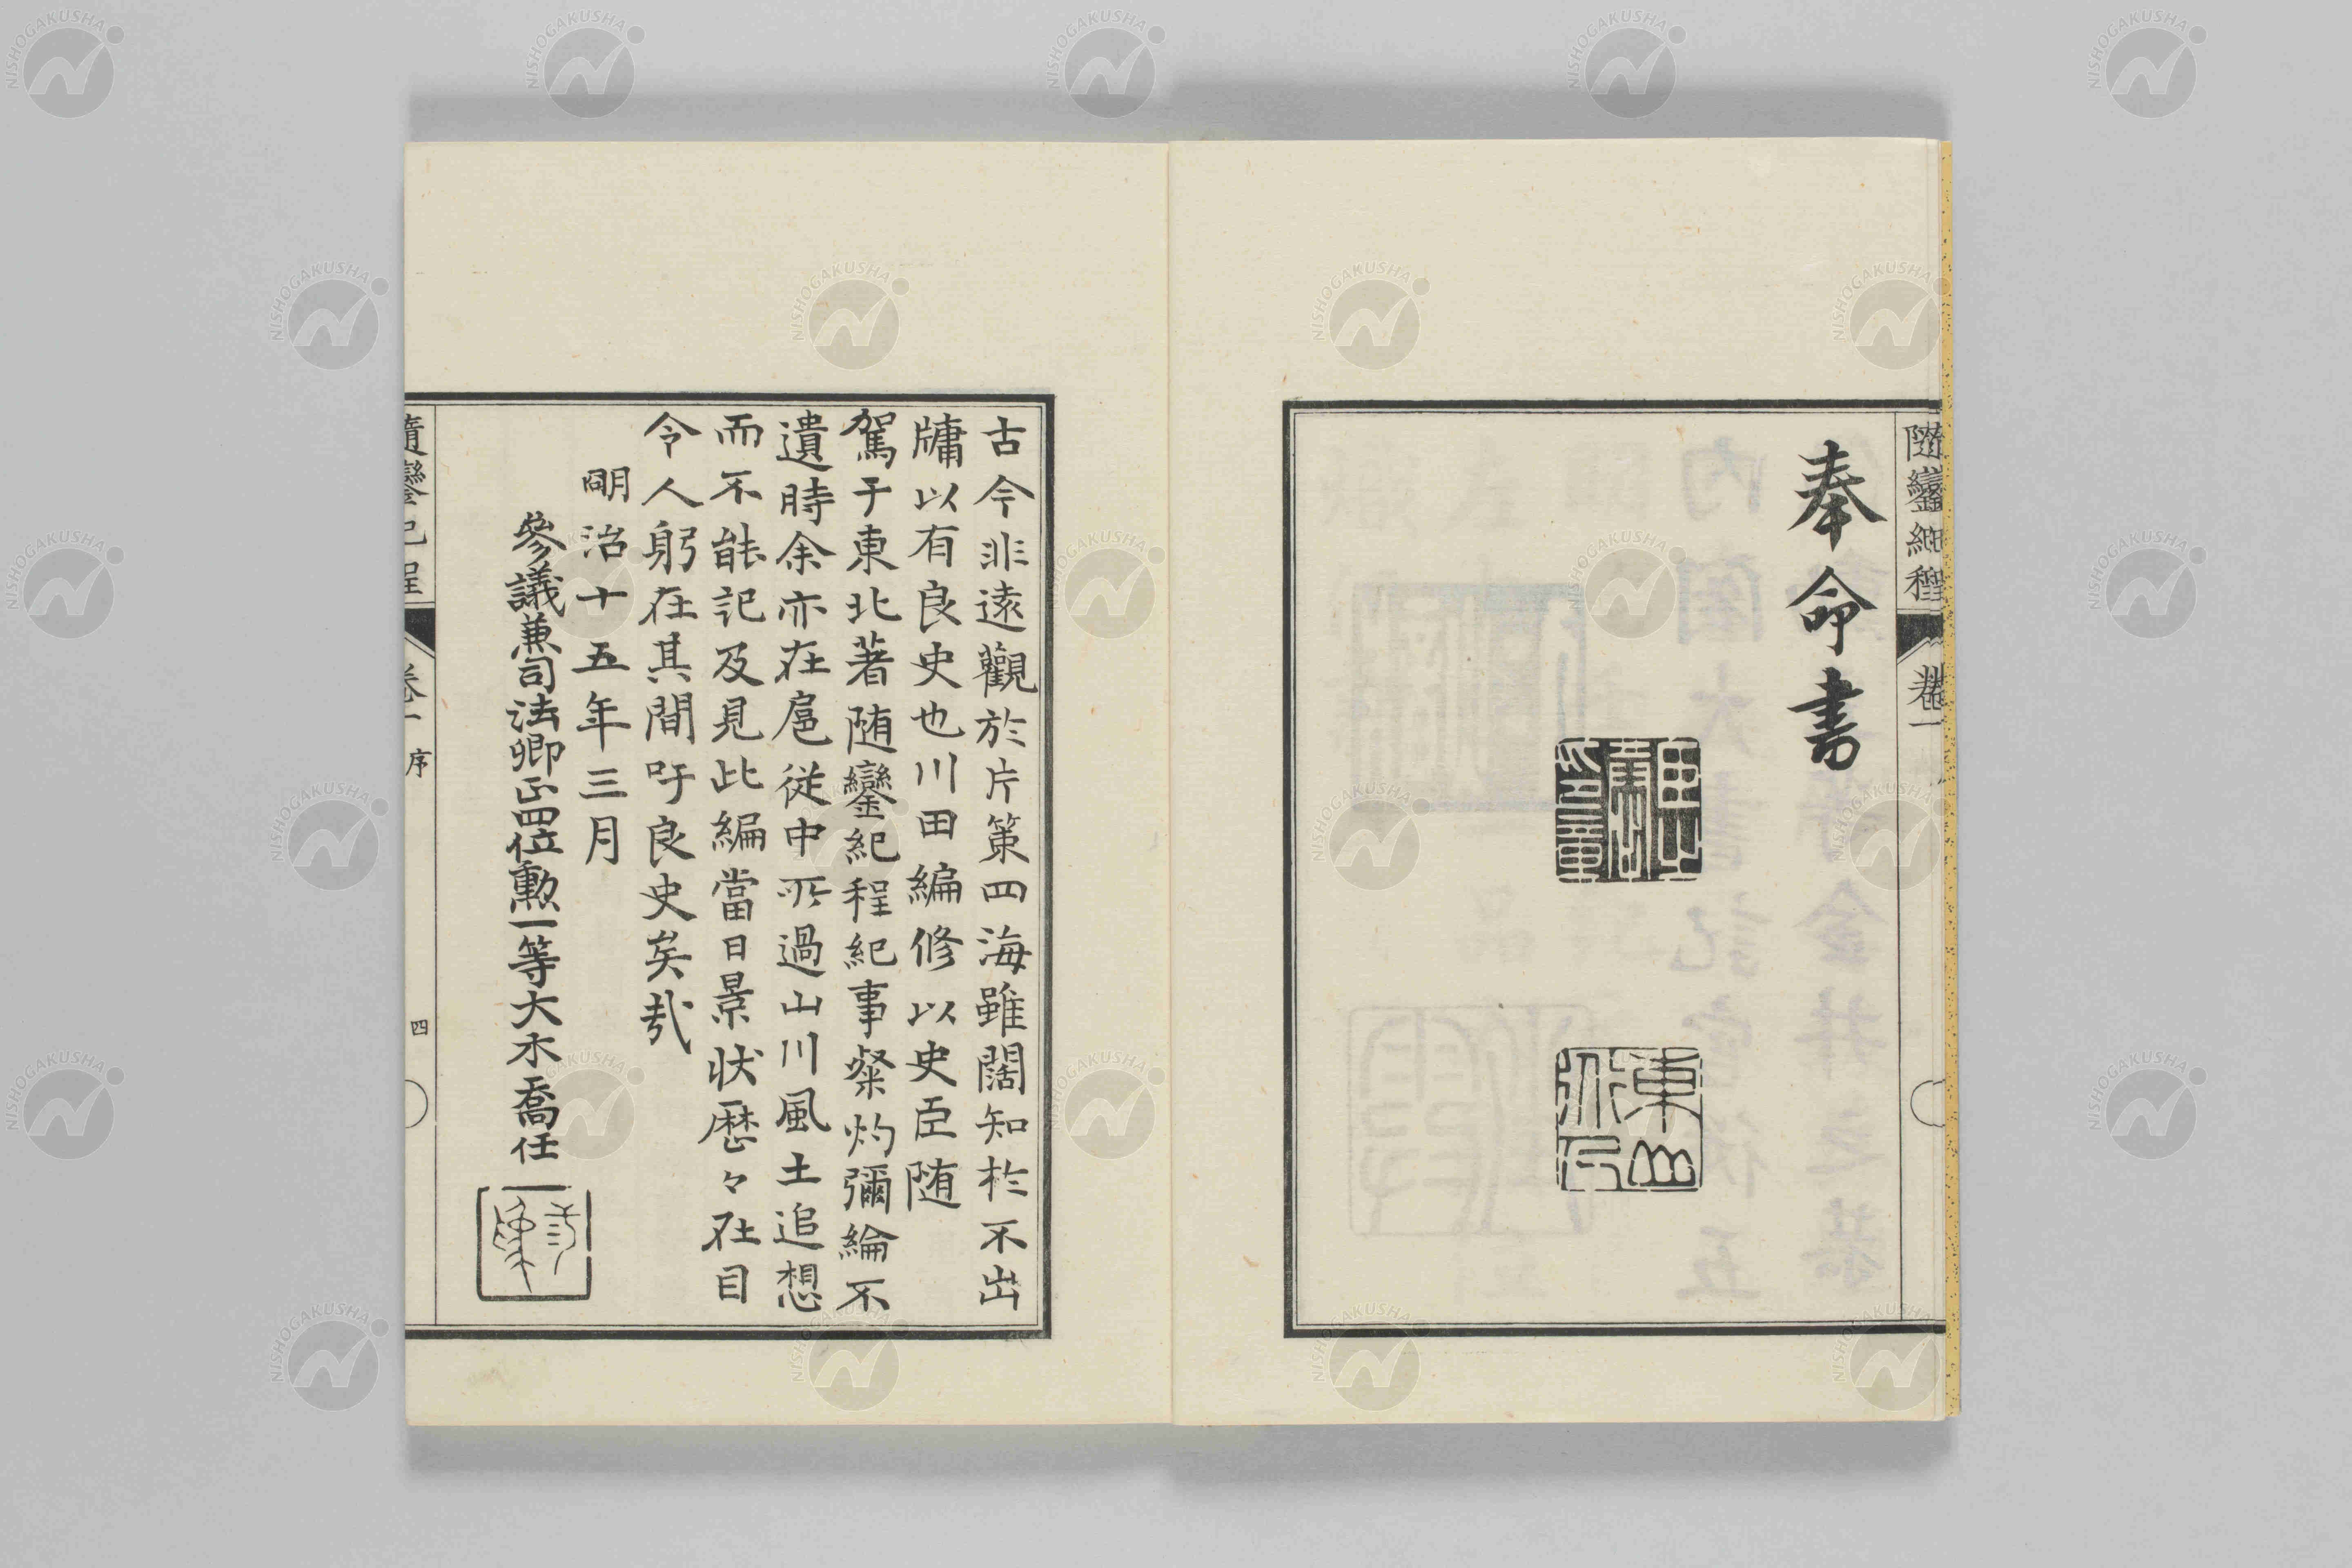 隨鑾紀程
卷一
奉命書
東山
古今非遠觀於片策四海雖闊知於不出
牗以有良史也川田編修以史臣随
駕于東北著随鑾紀程紀事粲灼彌綸不
遺時余亦在扈從中所過山川風土追想
而不能記及見此編當日景状歴々在目
令人躬在其間吁良史矣哉
明治十五年三月
參議兼司法卿正四位勲一等大木喬任
隨鑾紀程
卷一
序
四
NISHOGAKUSHA